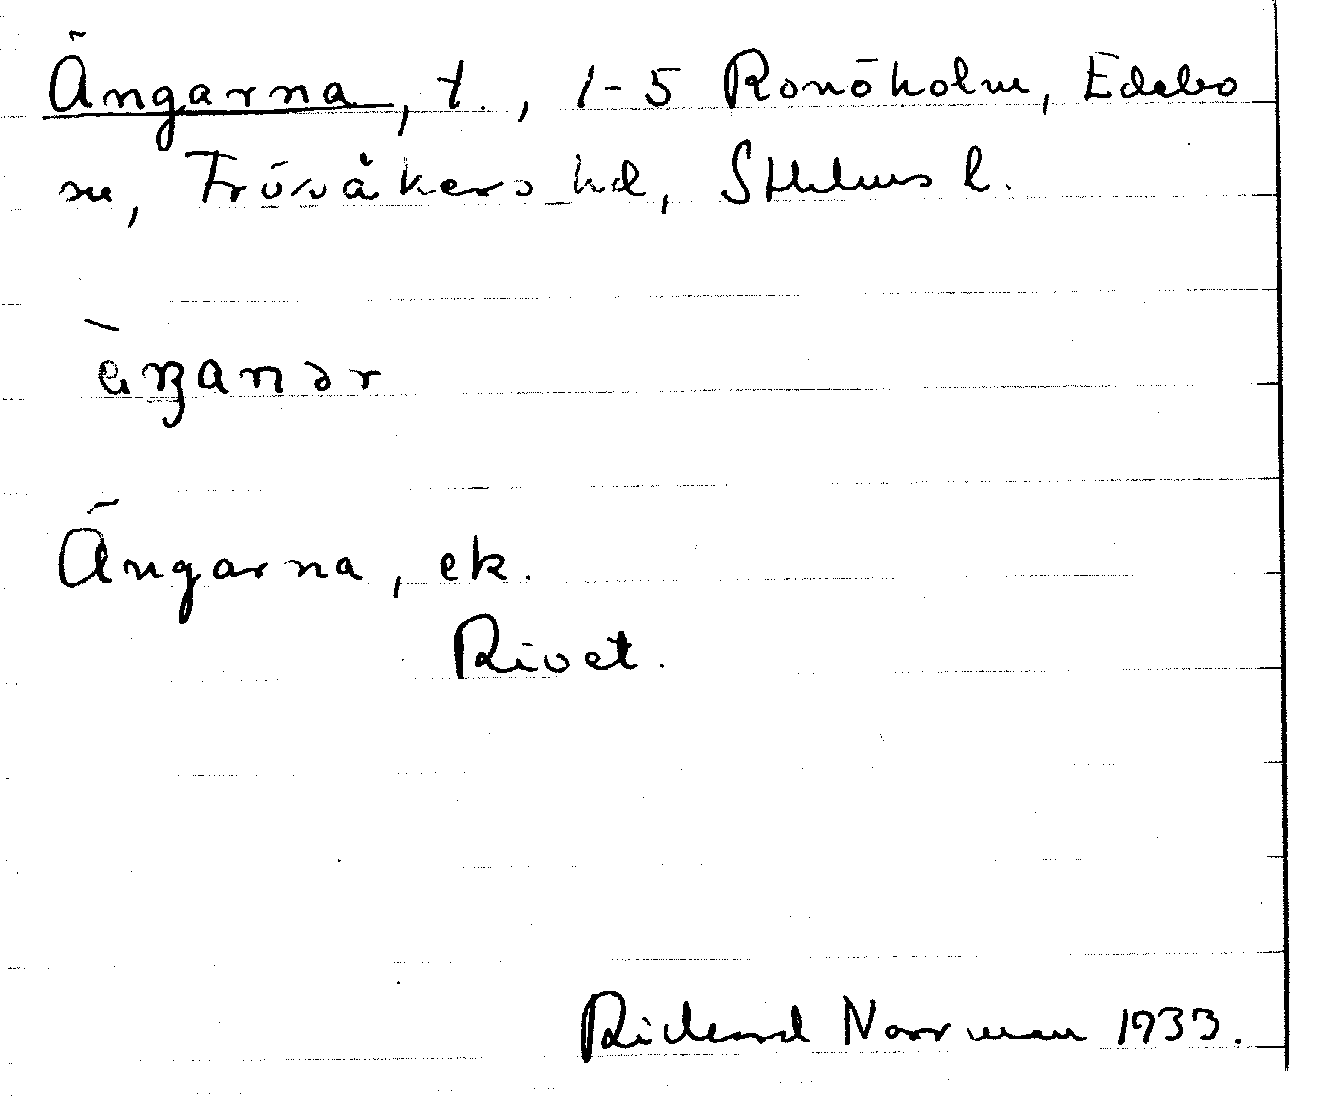 Ängarna, t., 1-5 Ronöholm, Edebo
sn, Frösåkers hd, Sthlms l.
Ängarna, ek.
Rivet.
Richard Norrman 1933.